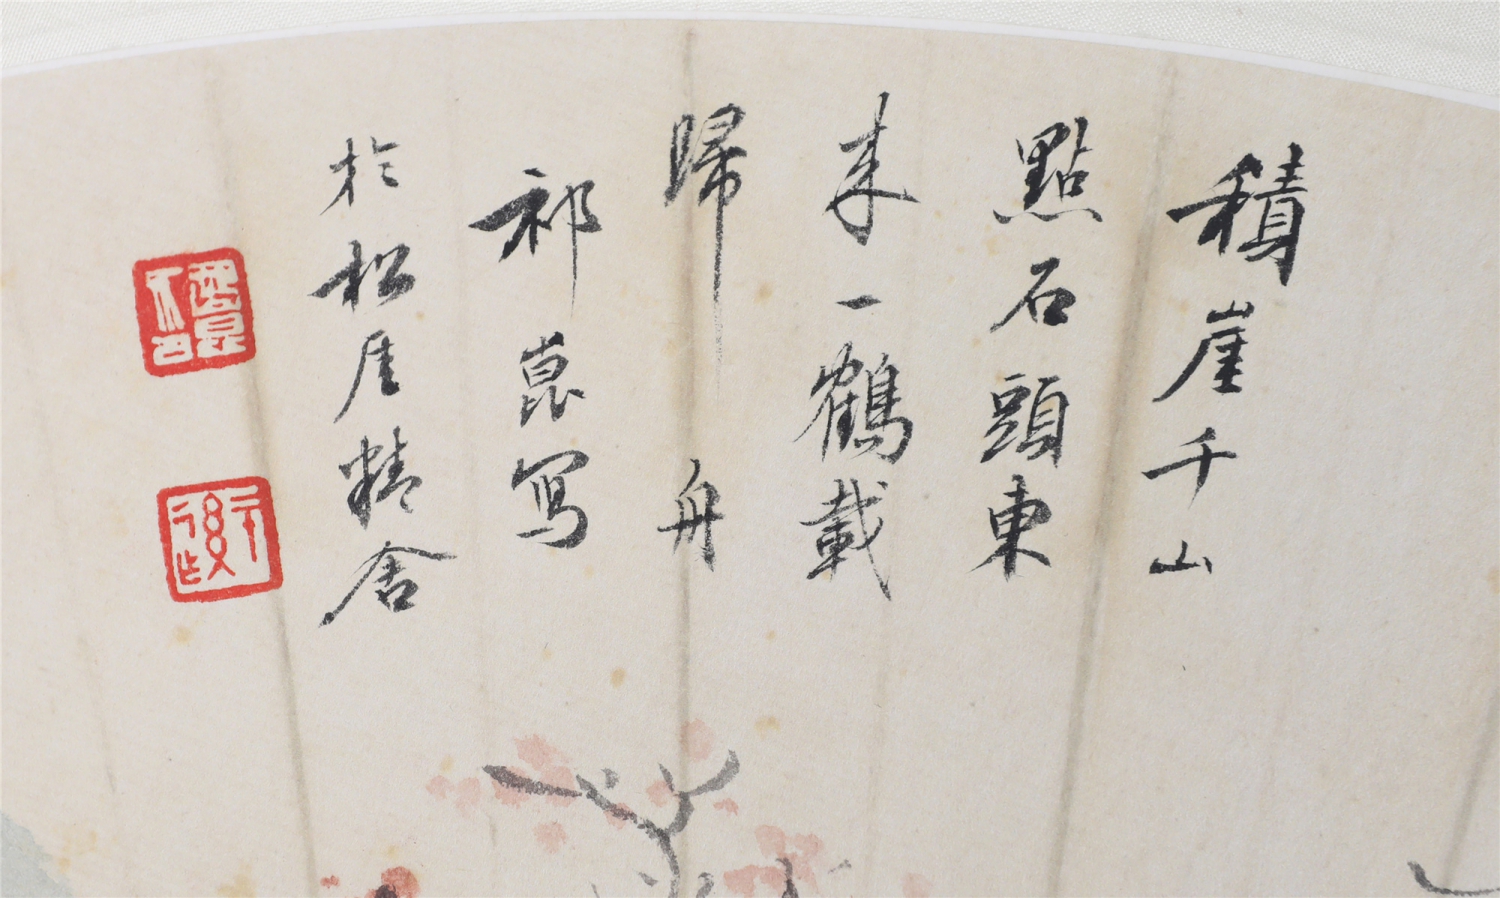 積崖千山
點石頭東
来一鶴載
歸舟
祁崑写
於松厓精舍